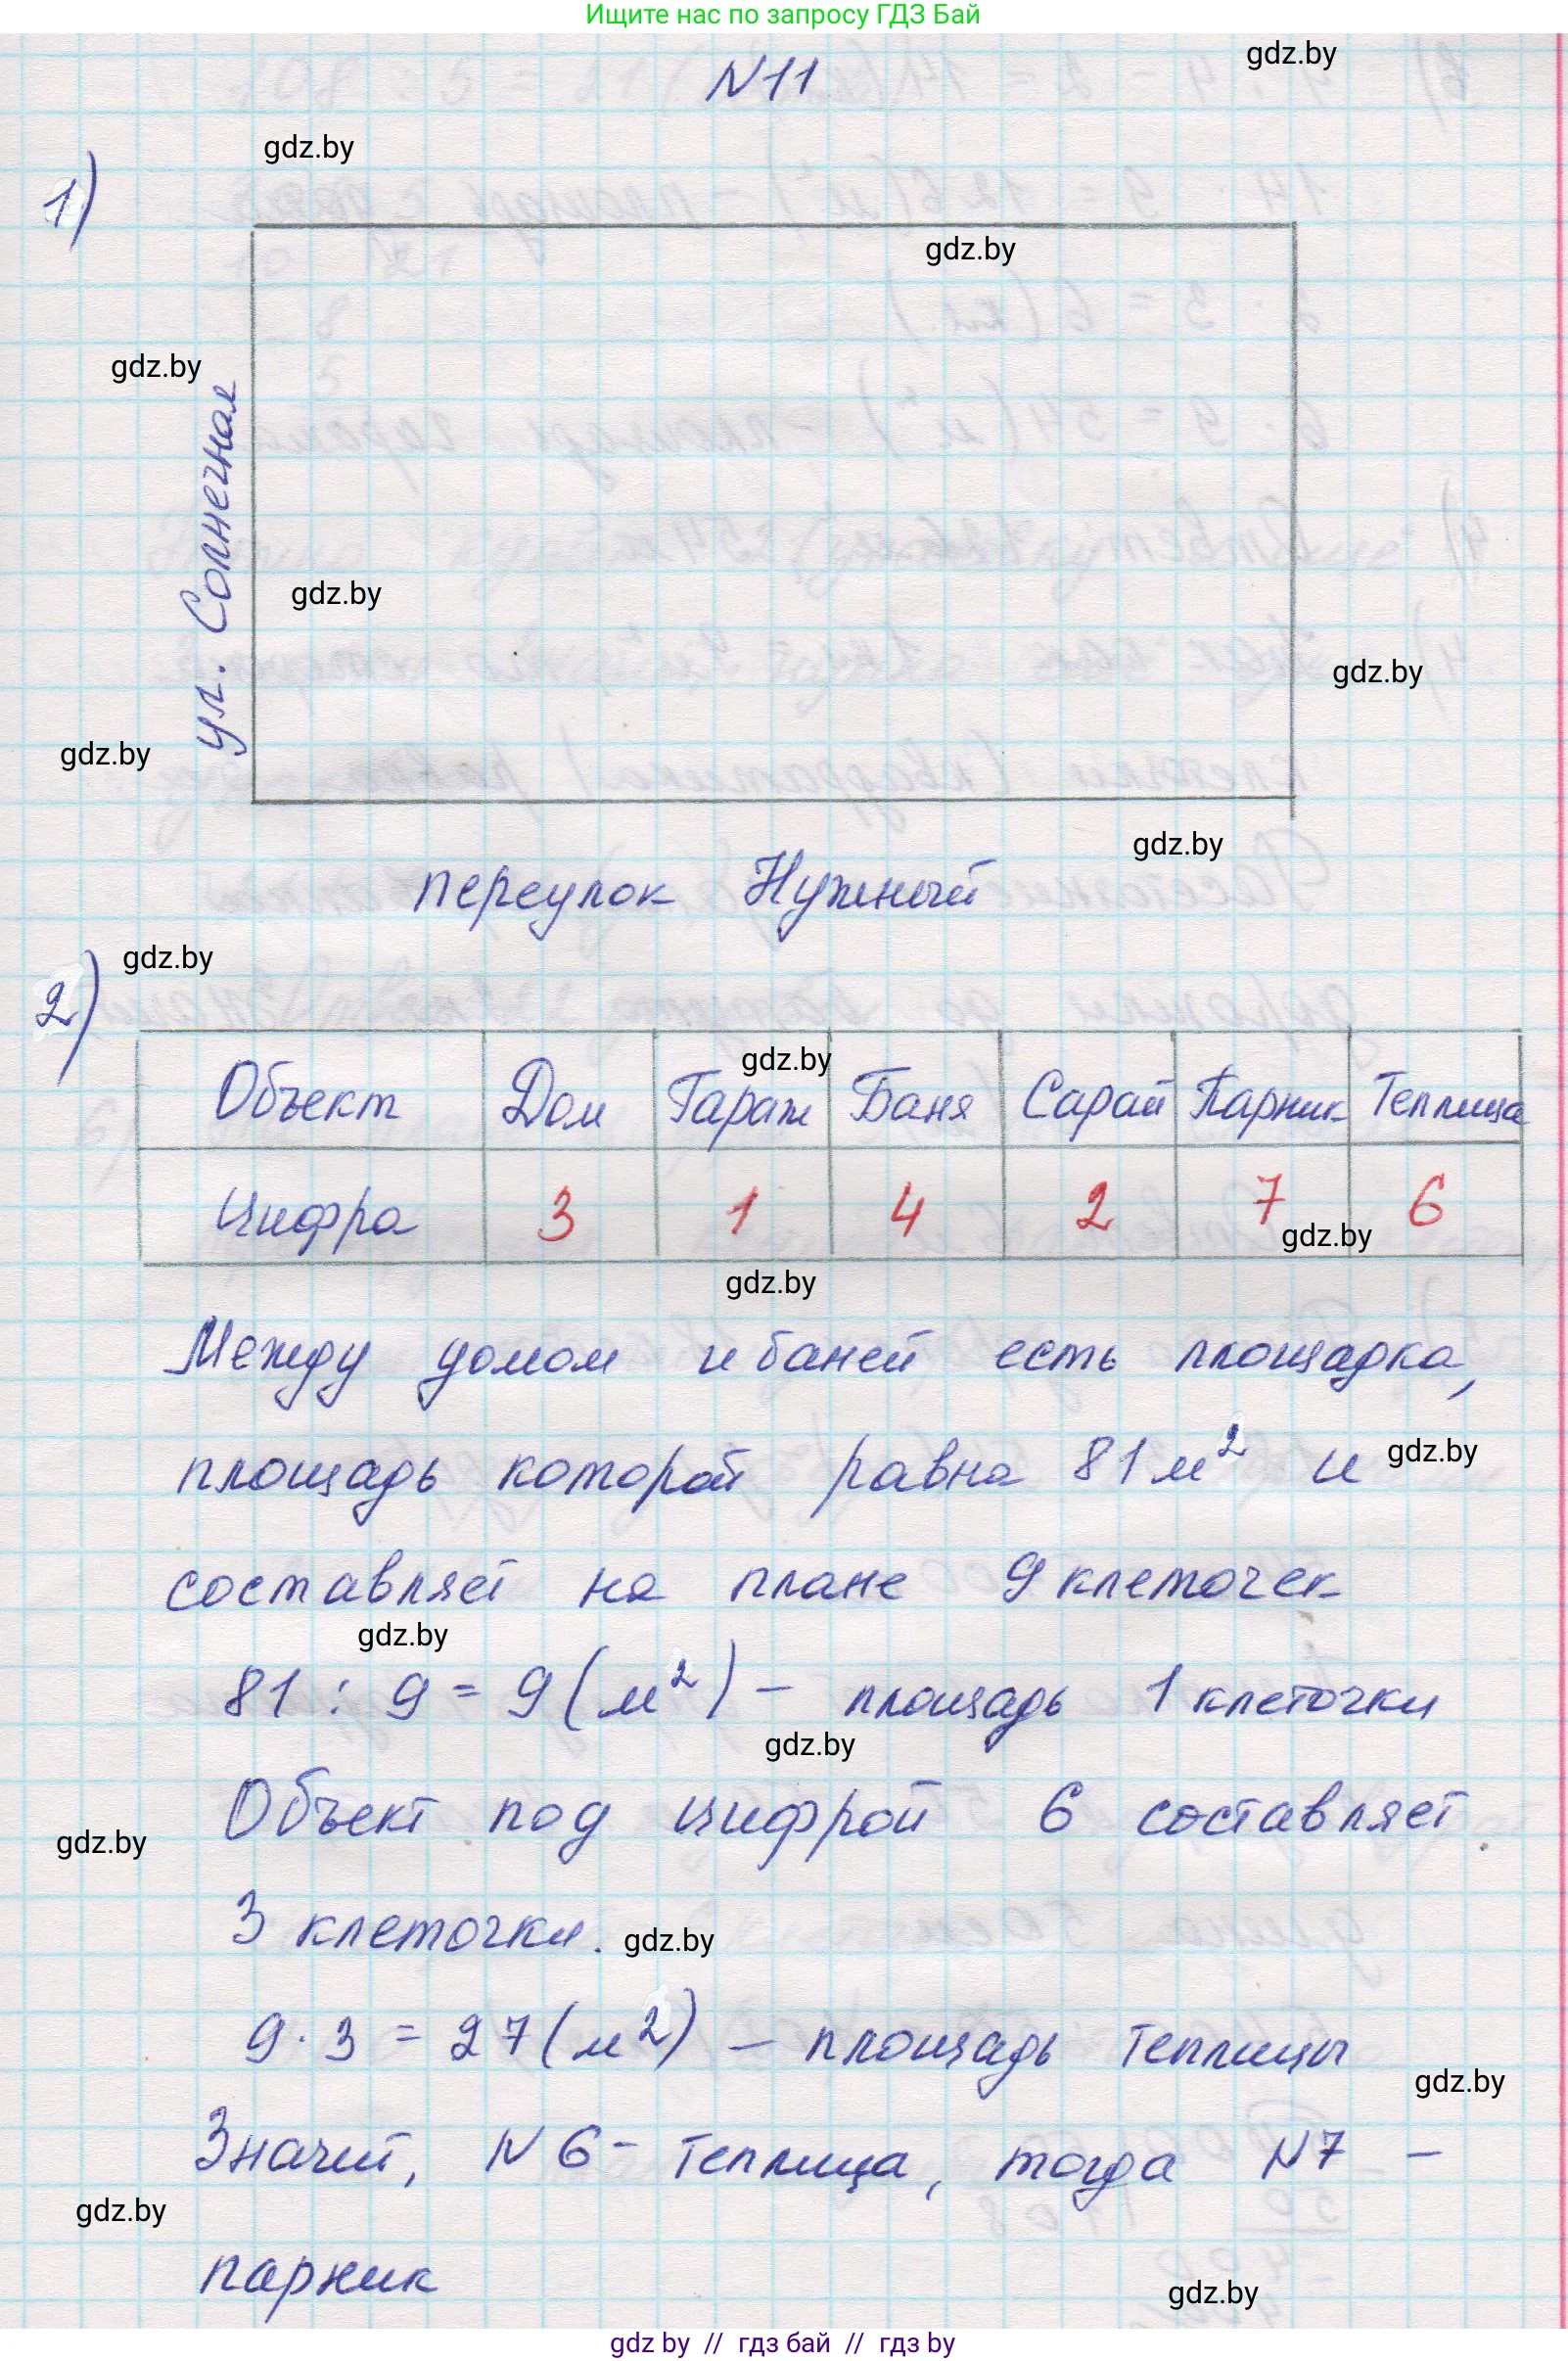 Ищите нас по запросу ГДЗ Бай
gdz.by
N11
gdz.by
1)
gdz.by
gdz.by
ул. Солнечная
gdz.by
gdz.by
gdz.by
gdz.by
переулок Нужный
gdz.by
2)
gdz.by
Объект Дом Гараж Баня Сарай Парник Теплица
Цифра 3 1 4 2 7 6
gdz.by
gdz.by
Между домом и баней есть площадка,
площадь которой равна 81 м² и
gdz.by
составляет на плане 9 клеточек
gdz.by
81 : 9 = 9 (м²) – площадь 1 клеточки
gdz.by
Объект под цифрой 6 составляет
gdz.by
3 клеточки.
gdz.by
9 · 3 = 27 (м²) – площадь теплицы
gdz.by
Значит, N 6 - теплица, тогда N7 –
gdz.by
парник
gdz.by
gdz by // гдз бай // гдз by